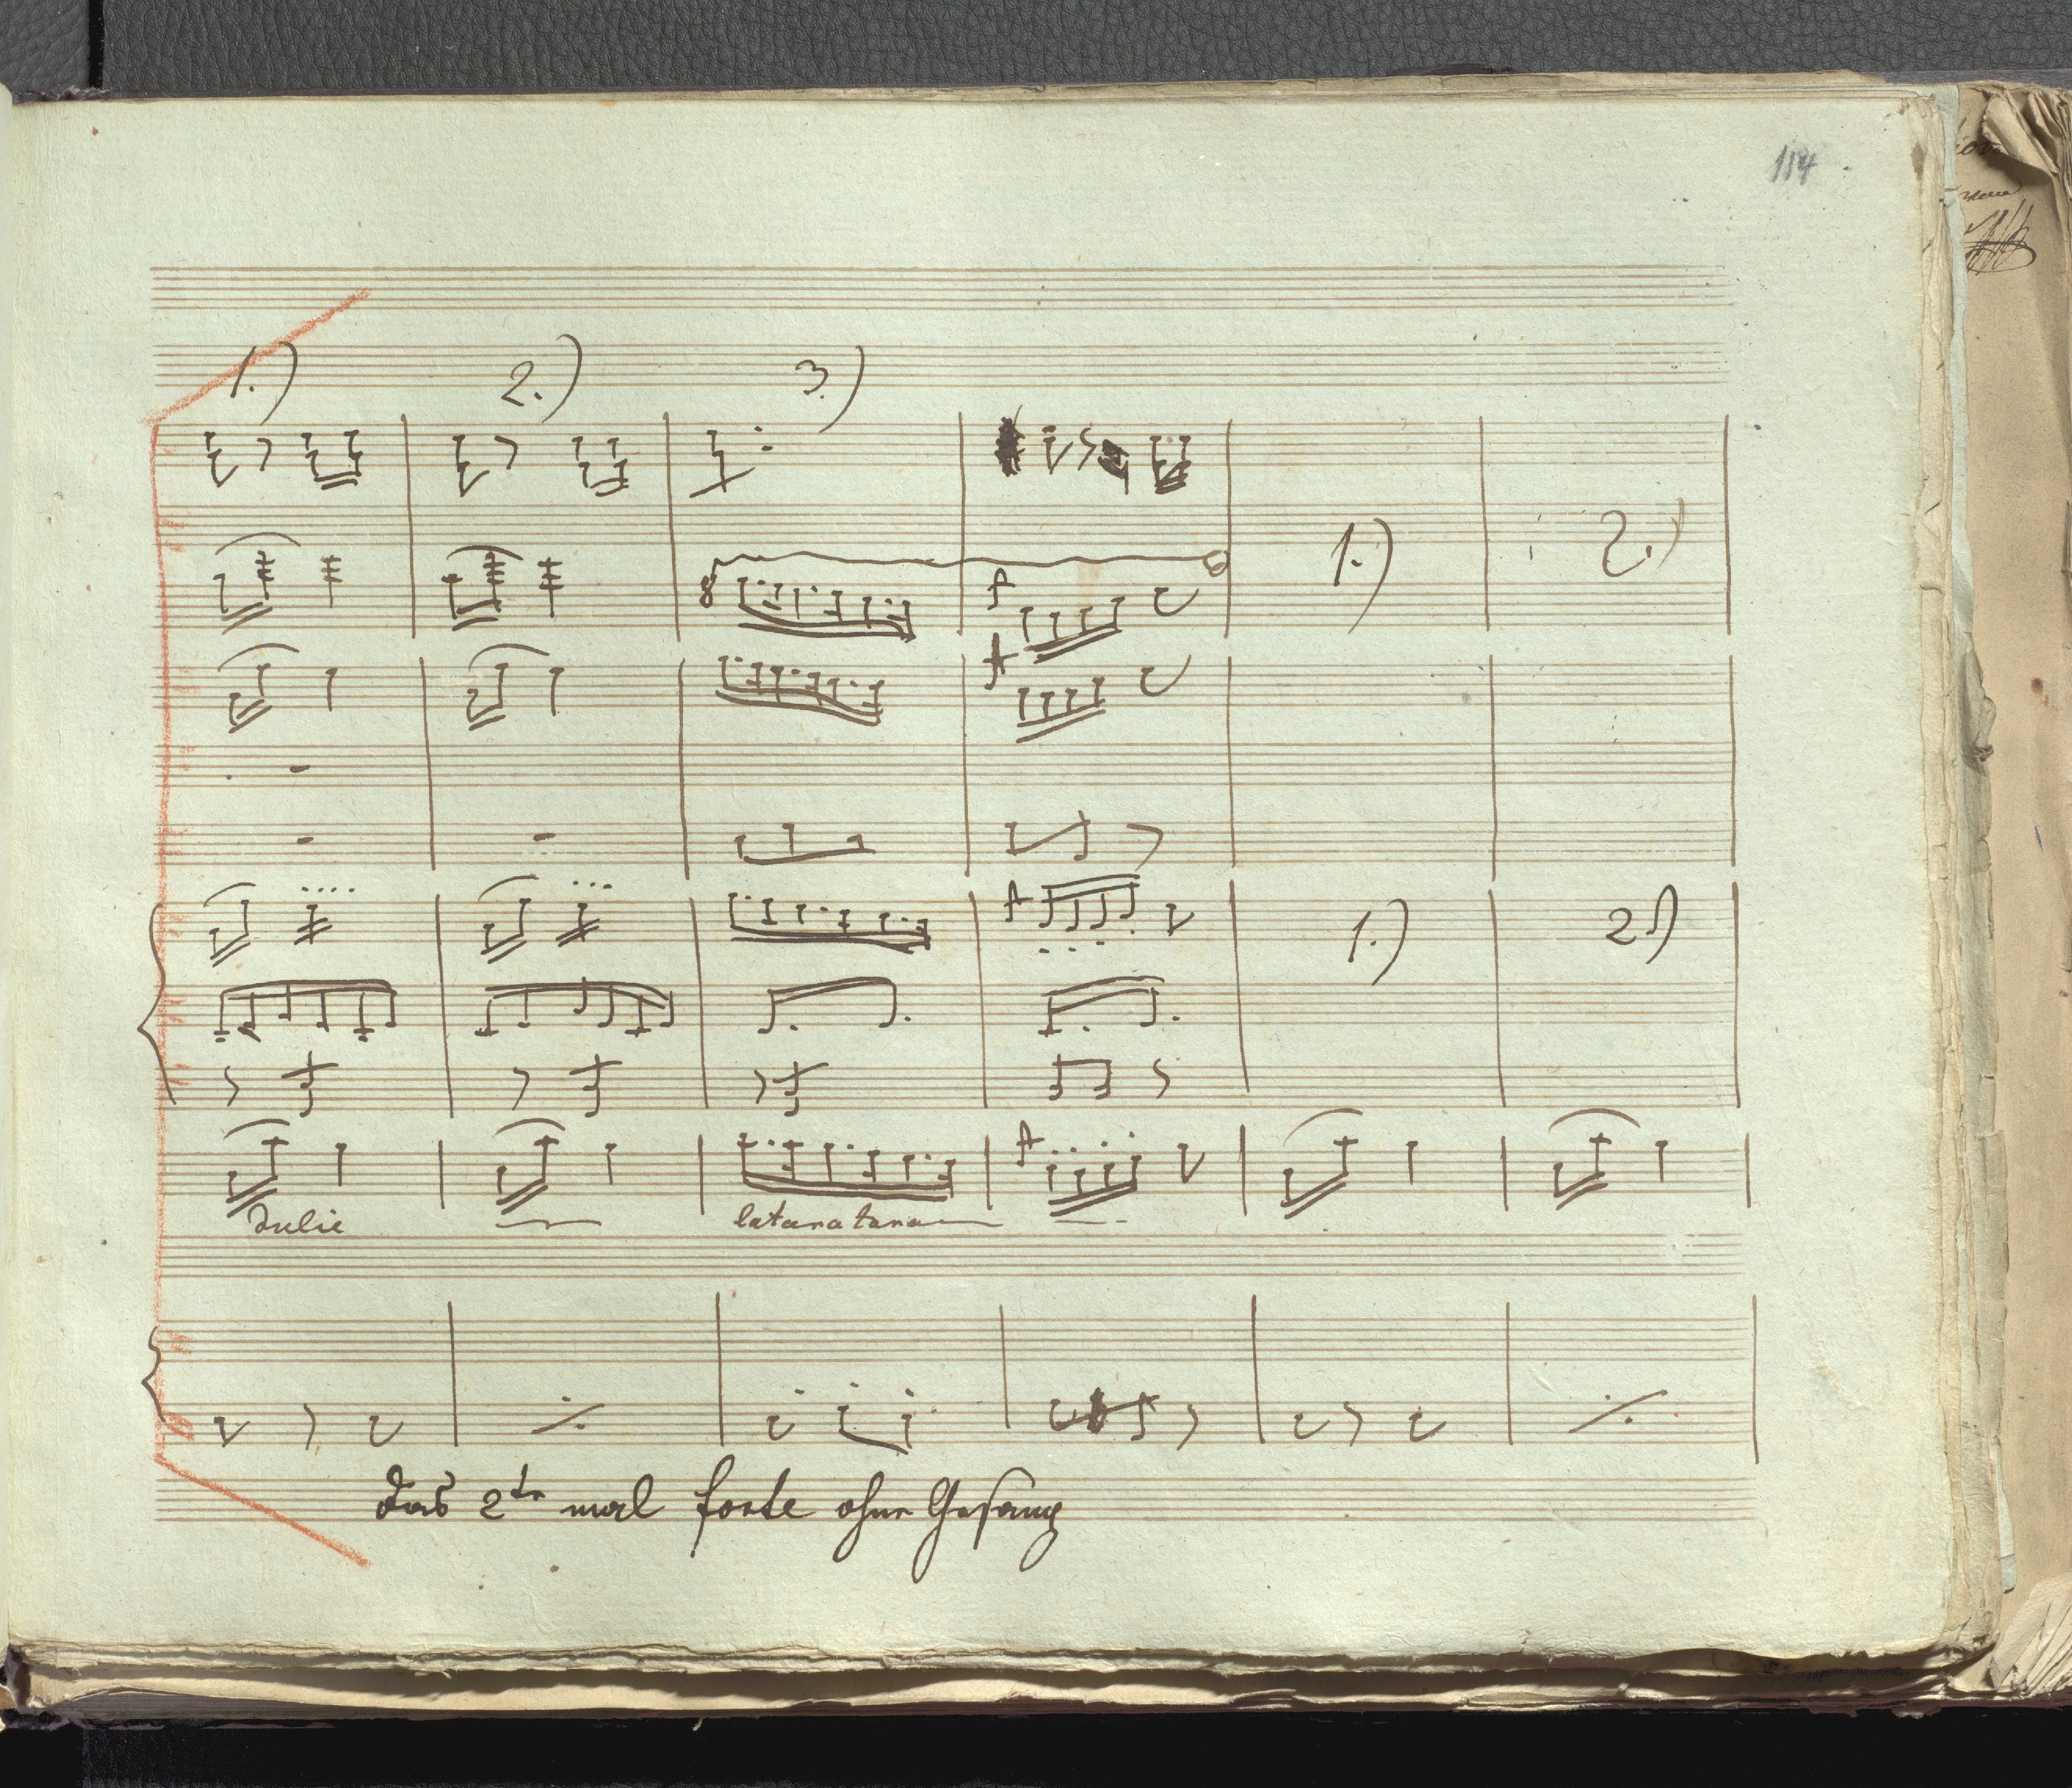 114
1.) 2.) 3.)
8
1.) 2.)
1.) 2.)
dulie latanatana
das 2te mal forte ohne Gesang